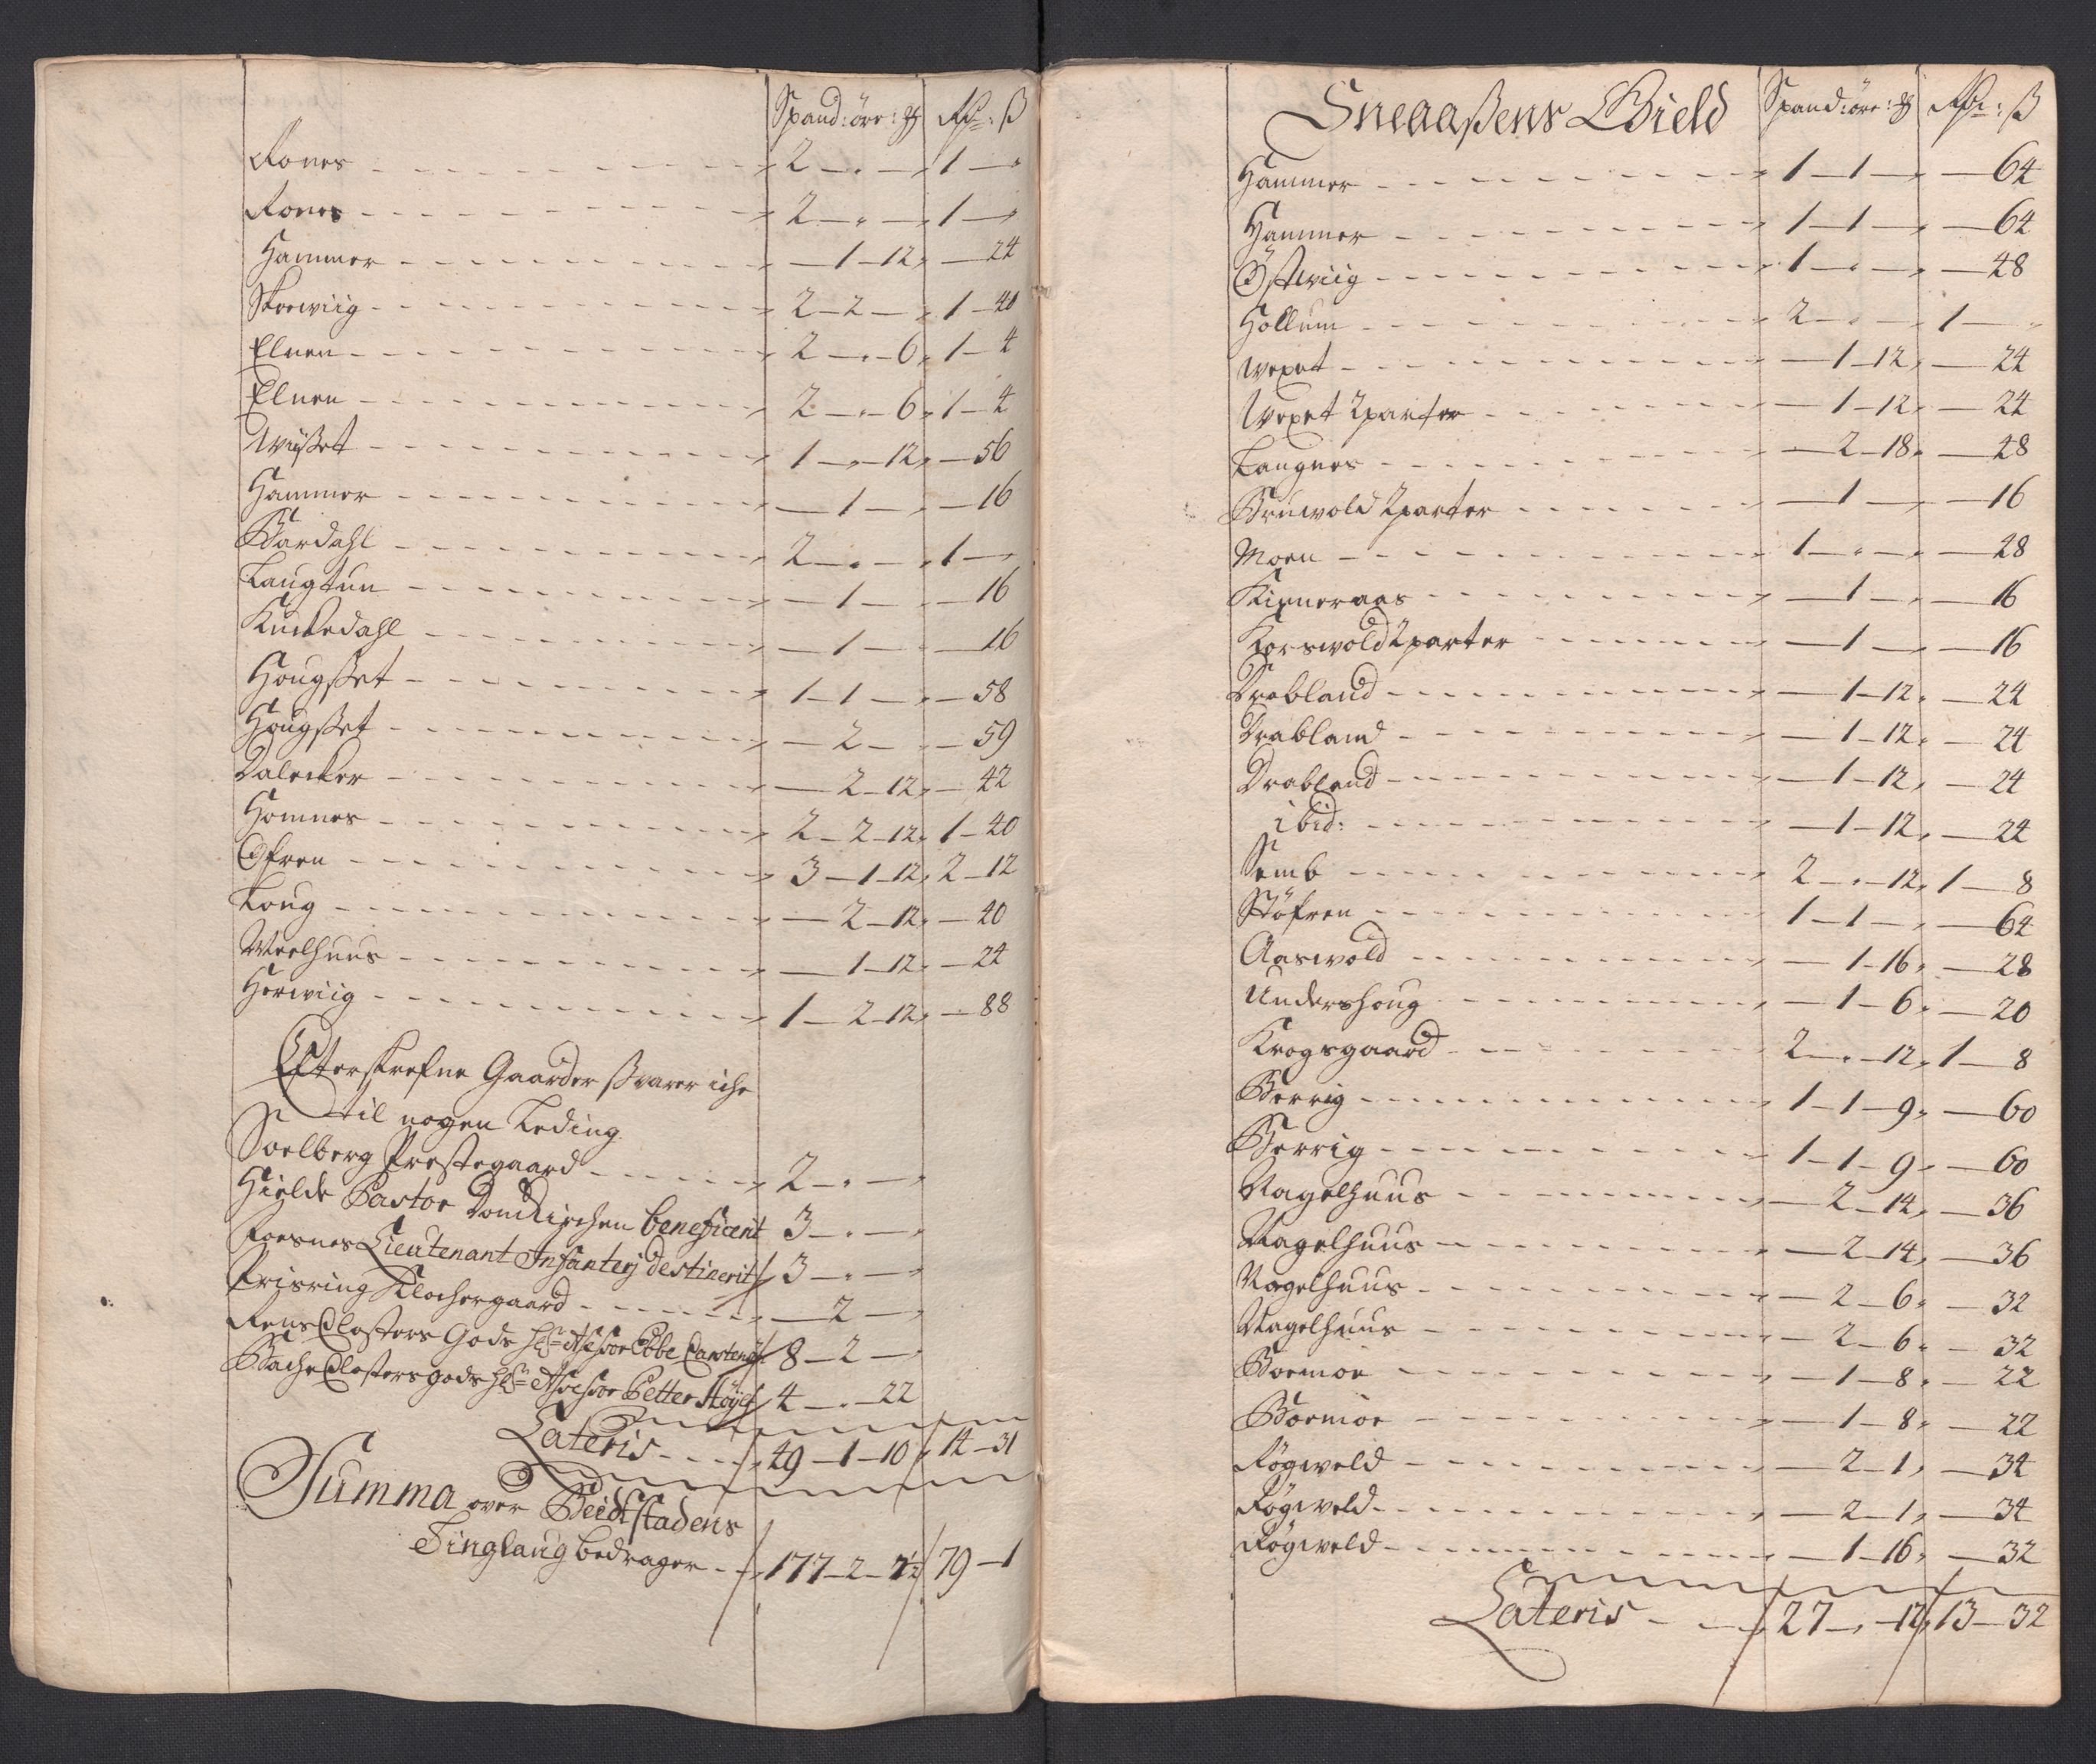 Spand: öre: ₰ Rdr: ß
Rones - - - 2 — „ — „ 1 — „
Rones - - - 2 — „ — „ 1 — „
Hammer - - - — 1 — 12 „ — 24
Skorwiig - - - 2 — 2 — „ 1 — 40
Elnen - - - 2 — „ — 6 „ 1 — 4
Elnen - - - 2 — „ — 6 „ 1 — 4
Wüßet - - - 1 — „ — 12 „ — 56
Hammer - - - — 1 — „ — 16
Bardahl - - - 2 — „ — „ 1 — „
Langtun - - - — 1 — „ — 16
Kuckedahl - - - — 1 — „ — 16
Hougßet - - - 1 — 1 — „ — 58
Hougßet - - - — 2 — „ — 59
Dalecker - - - — 2 — 12 „ — 42
Homnes - - - 2 — 2 — 12 „ 1 — 40
Ofren - - - 3 — 1 — 12 „ 2 — 12
Loug - - - — 2 — 12 „ — 40
Weelhuus - - - — 1 — 12 „ — 24
Herwiig - - - 1 — 2 — 12 „ — 88
Efterskrefne Gaarder ßvarer iche
til nogen Leding
Soelberg Prestegaard - - - 2 — „ — „
Hielde Pastor Domkirchen beneficerit 3 — „ — „
Roesnes Lieutenant Infanterj destinerit 3 — „ — „
Krisring Klochergaard - - - — 2 — „
Rens Closters Gods Hr Assessor Ebbe Carstens 8 — 2 — „
Bache Closters gods Hr Assessor Petter Höyer 4 — „ — 22
Lateris - - - 49 — 1 — 10 / 14 — 31
Summa over Beidstadens
Tinglaug bedrager - - 177 — 2 — 2½ / 79 — 1
Sneaaßens Gield Spand: öre: ₰ Rdr: ß
Hammer - - - 1 — 1 — „ — 64
Hammer - - - 1 — 1 — „ — 64
Östwiig - - - 1 — „ — „ — 48
Hollum - - - 2 — „ — 1 — „
Wexet - - - — 1 — 12 „ — 24
Wexet 2 parter - - - — 1 — 12 „ — 24
Langnes - - - — 2 — 18 „ — 48
Bruwold 2 parter - - - — 1 — „ — 16
Moen - - - 1 — „ — „ — 28
Kinneraas - - - — 1 — „ — 16
Korswold 2 parter - - - — 1 — „ — 16
Drabland - - - — 1 — 12 „ — 24
Drabland - - - — 1 — 12 „ — 24
Drabland - - - — 1 — 12 „ — 24
ibid: - - - — 1 — 12 „ — 24
Semb - - - 2 — „ — 12 „ 1 — 8
Støfren - - - 1 — 1 — „ — 64
Aaswold - - - — 1 — 16 „ — 28
Undershoug - - - — 1 — 6 „ — 20
Krogsgaard - - - 2 — „ — 12 „ 1 — 8
Berrig - - - 1 — 1 — 9 „ — 60
Berrig - - - 1 — 1 — 9 „ — 60
Nagelhuus - - - — 2 — 14 „ — 36
Nagelhuus - - - — 2 — 14 „ — 36
Nagelhuus - - - — 2 — 6 „ — 32
Nagelhuus - - - — 2 — 6 „ — 32
Boemoe - - - — 1 — 8 „ — 22
Boemoe - - - — 1 — 8 „ — 22
Røgweld - - - — 2 — 1 „ — 34
Røgweld - - - — 2 — 1 „ — 34
Røgweld - - - — 1 — 16 „ — 32
Lateris - - - 27 — „ — 12 / 13 — 32